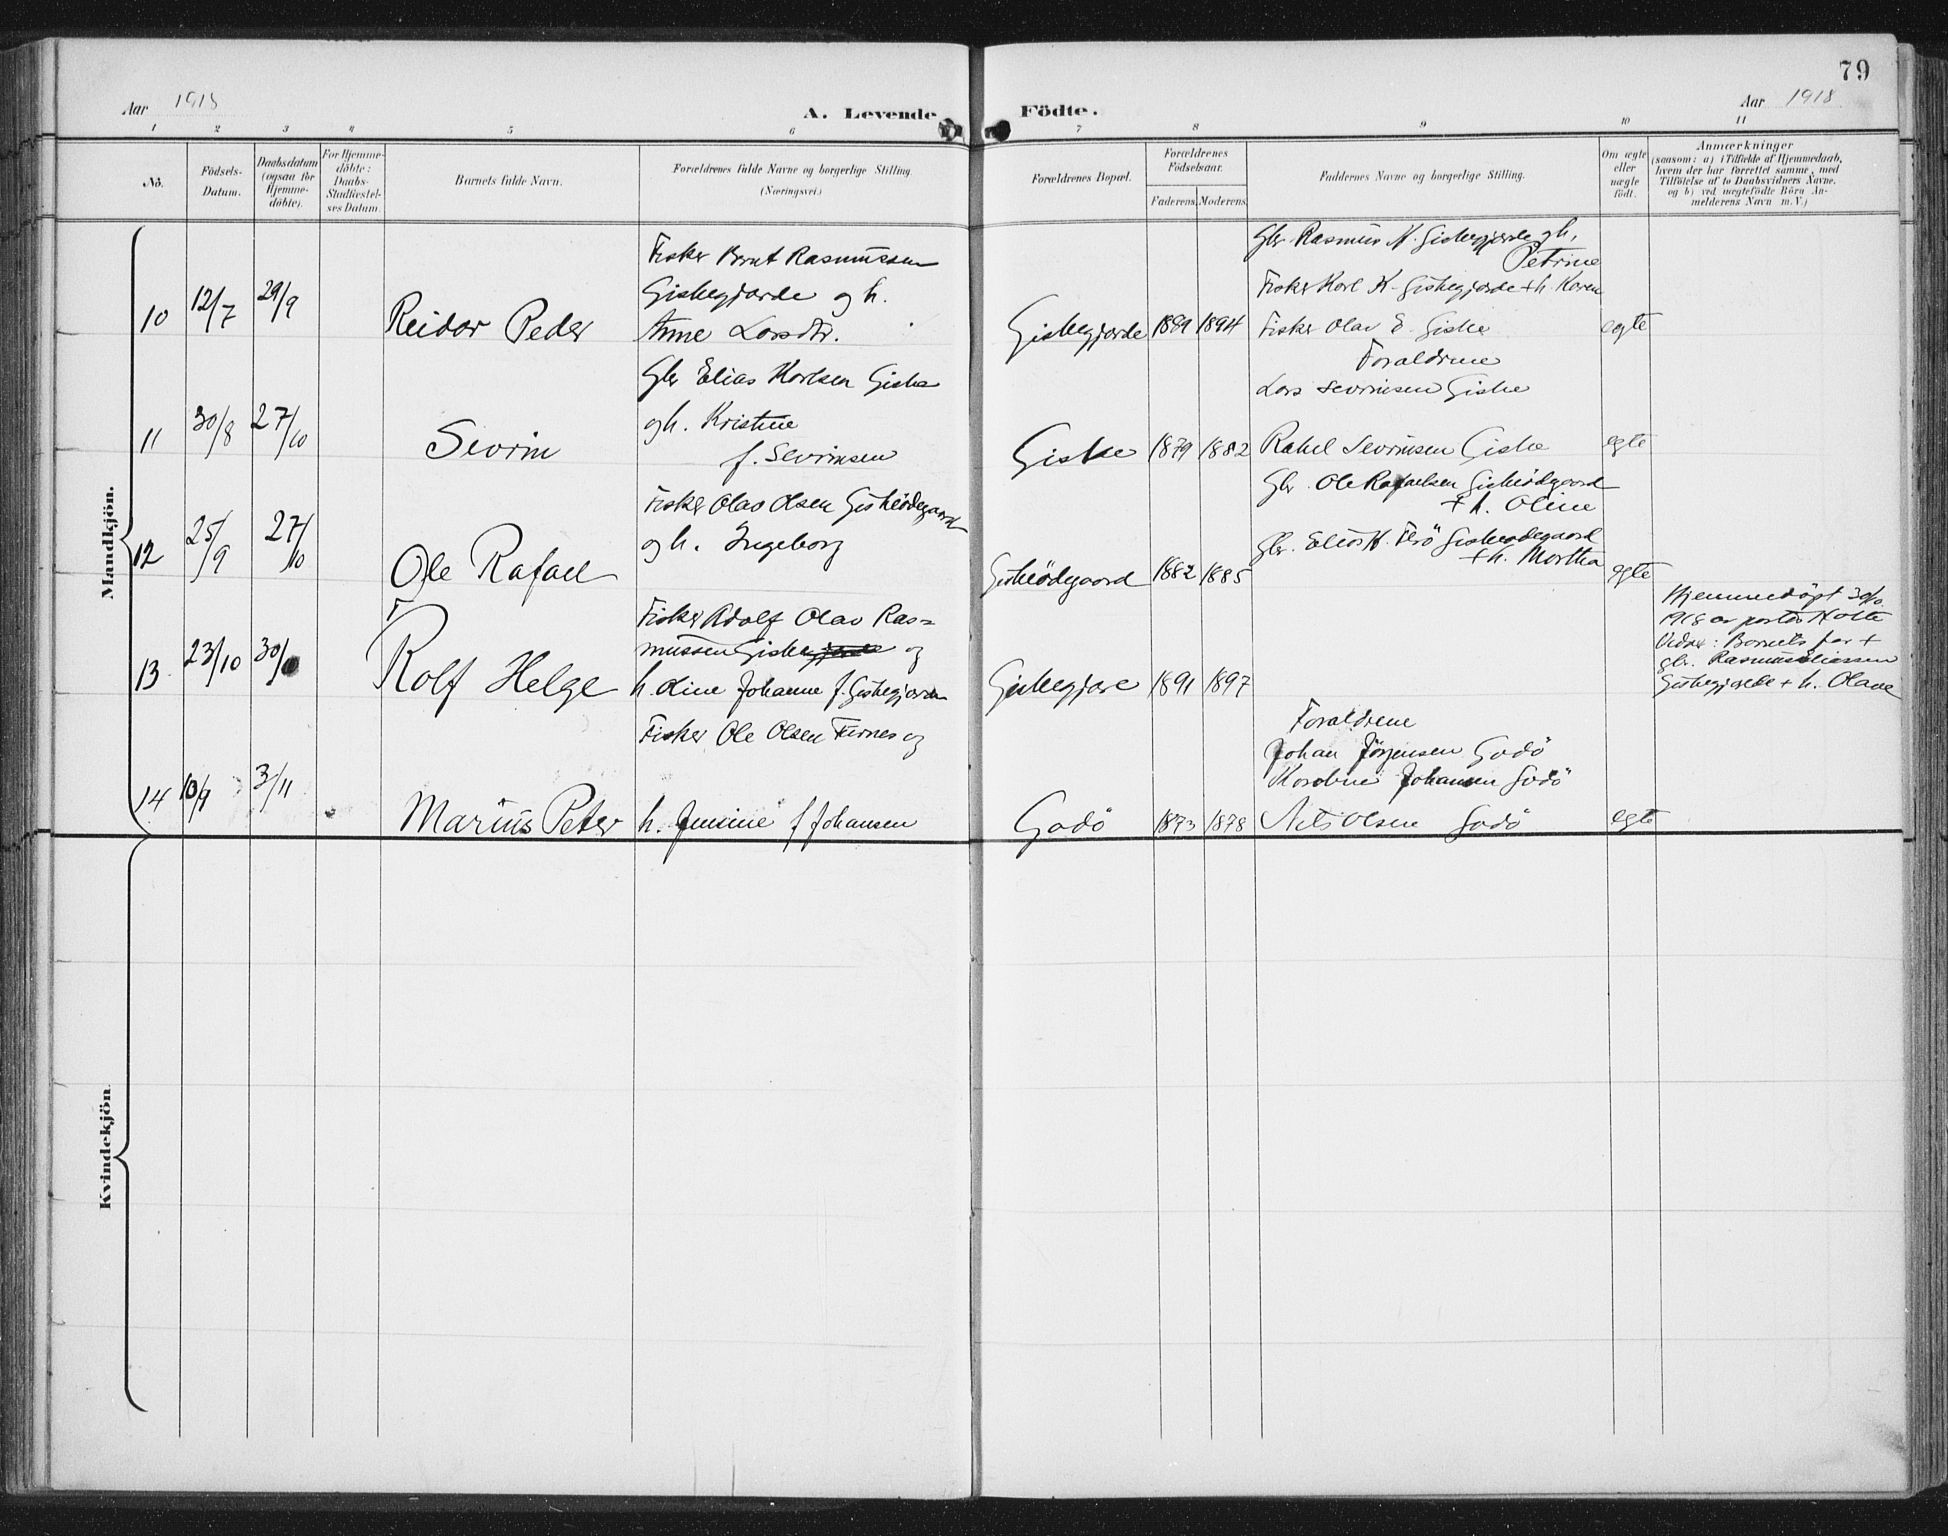 79
Aar 1918
A. Levende Födte.
Aar 1918
1 2 3 4 5 6 7 8 9 10 11
No.
Födsels-
Datum.
Daabsdatum
(ogsaa for
Hjemme-
döbte).
For Hjemme-
döbte:
Daabs-
Stadfæstel-
ses Datum.
Barnets fulde Navn.
Forældrenes fulde Navne og borgerlige Stilling.
(Næringsvei.)
Forældrenes Bopæl.
Forældrenes
Födselsaar.
Faderens. Moderens.
Faddernes Navne og borgerlige Stilling.
Om ægte
eller
uægte
født.
Anmærkninger
(saasom: a) i Tilfælde af Hjemmedaab,
hvem der har forrettet samme, med
Tilföielse af to Daabsvidners Navne,
og b) ved uægtefödte Börn An-
melderens Navn m. V.)
Mandkjön.
10 12/7 29/9 Reidar Peder
Fisker Bernt Rasmussen
Giskegjærde og h.
Anne Larsdtr.
Giskegjærde 1889 1894
Gbr. Rasmus K. Giskegjerde og h.
Petrine
Fisker Karl K. Giskegjerde + h. Karen
Fisker Olav E. Giske
egte
11 30/8 27/10 Sevrin
Gbr Elias Karlsen Giske
og h. Kristine
f. Sevrinsen
Giske 1879 1882
Foraldrene
Lars Sevrinsen Giske
Rakel Sevrinsen Giske
egte
12 25/9 27/10 Ole Rafael
Fisker Olav Olsen Giskeödegaard
og h. Ingeborg
Giskeödegaard 1882 1885
Gbr. Ole Rafaelsen Giskeödegaard
+ h. Oline
Gbr. Elias K. Giskeödegaard
+ h. Martha
egte
13 23/10 30/ Rolf Helge
Fisker Adolf Olav Ras=
mussen Giskegjerde og
h. Line Johanne f. Giskegjerde
Giskegjære 1891 1897
Hjemmedöpt 30/10
1918 av pastor Hatte
Vidner: Barnets far +
gbr. Rasmus Eliassen
Giskegjærde + h. Olave
14 10/9 3/11 Marius Peter
Fisker Ole Olsen Furnes og
h. Jensine f Johansen
Godö 1873 1878
Foraldrene
Johan Jörgensen Godö
Karoline Johansen Godö
Nils Olsen Godö
egte
Kvindekjön